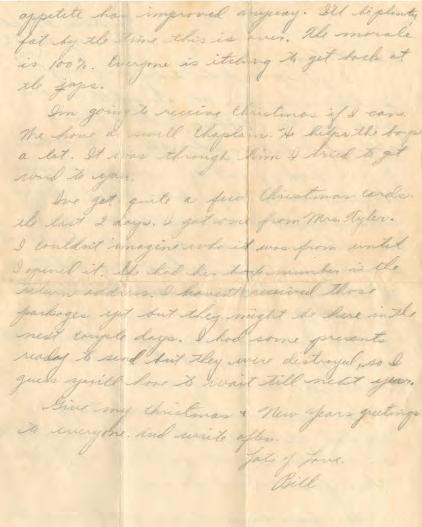 appetite has improved anyway. I'll be plenty
fat by the time this is over. The morale
is 100%. Everyone is itching to get back at
the japs.
I'm going to receive Christmas if I can.
We have a swell Chaplain. He helps the boys
a lot. It was through him I tried to get
word to you.
I've got quite a few Christmas cards
the last 2 days. I got one from Mrs. Tyler.
I couldn't imagine who it was from until
I opened it. She had her box number in the
return address. I haven't received those
packages yet but they might be here in the
next couple days. I had some presents
ready to send but they were destroyed, so I
guess you'll have to wait till next year.
Give my Christmas & New Years greetings
to everyone. And write often.
Lots of Love.
Bill